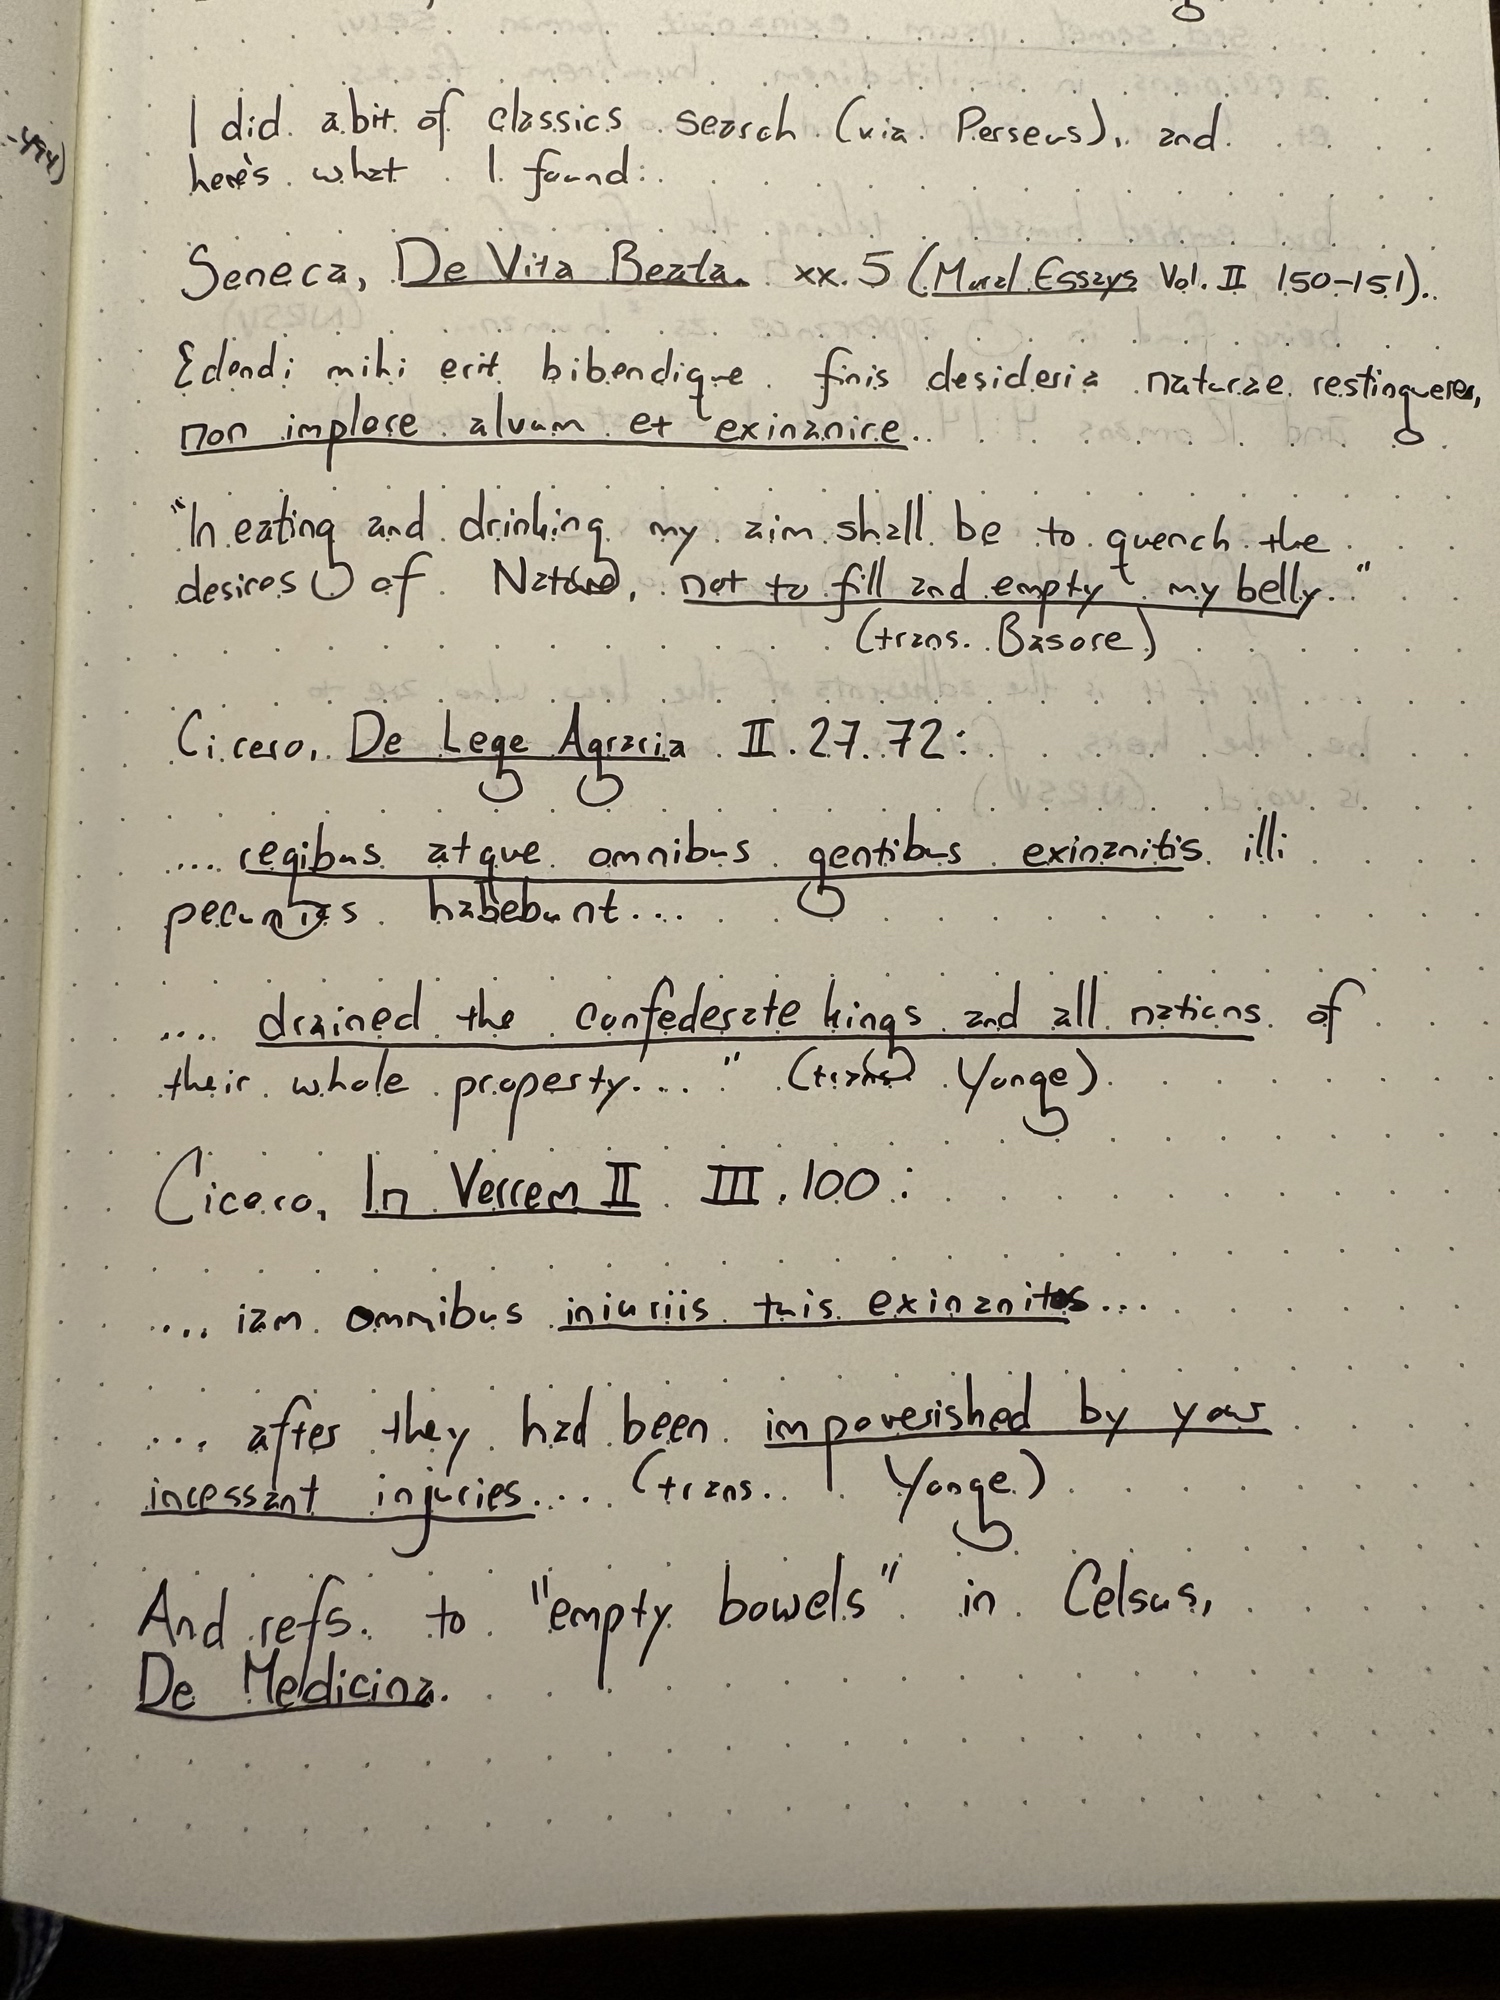 -494)
I did a bit of classics search (via Perseus), and
here's what I found:
Seneca, De Vita Beata xx.5 (Moral Essays Vol. II 150-151).
Edendi mihi erit bibendique finis desideria naturae restinguere,
non implere alvum et exinanire.
"In eating and drinking my aim shall be to quench the
desires of Nature, not to fill and empty my belly."
(trans. Basore)
Cicero, De Lege Agraria II.27.72:
.... regibus atque omnibus gentibus exinanitis illi
pecunias habebunt...
.... drained the confederate kings and all nations of
their whole property...." (trans. Yonge).
Cicero, In Verrem II III.100:
.... iam omnibus iniuriis tuis exinanitos...
... after they had been impoverished by your
incessant injuries.... (trans. Yonge)
And refs. to "empty bowels" in Celsus,
De Medicina.